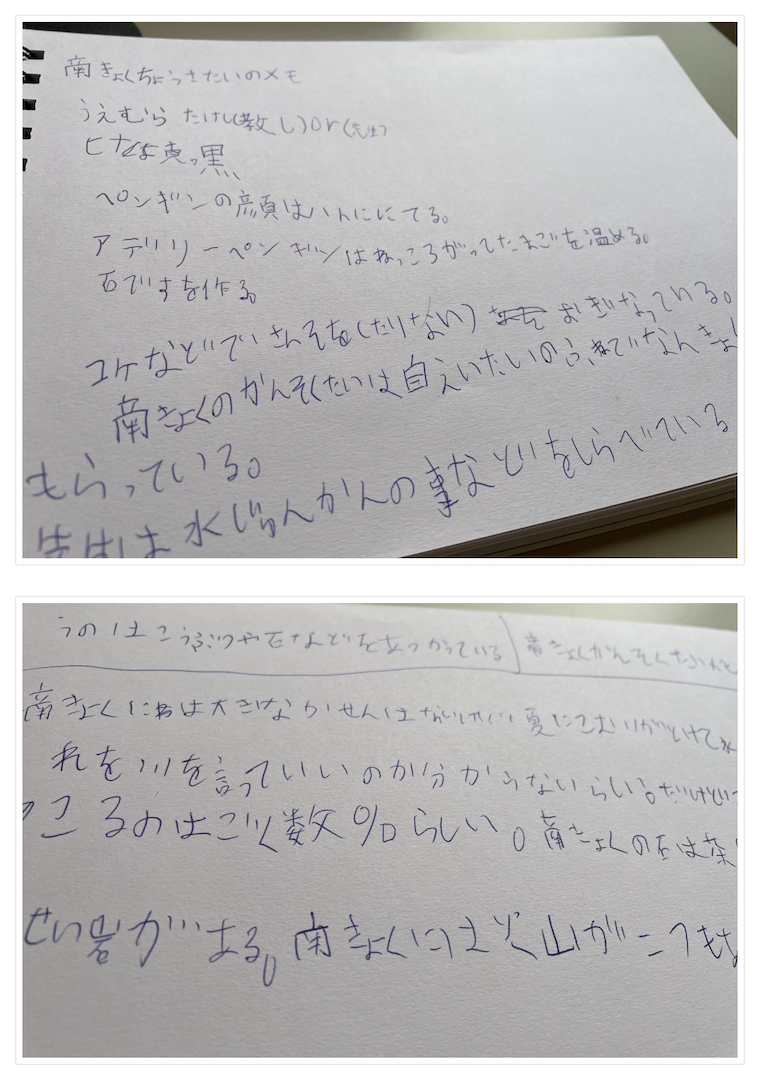 南きょくちょうさたいのメモ
うえむら たけし(教し)or(先生)
ヒナは真っ黒
ペンギンの顔はハトににてる。
アデリーペンギンはねっころがってたまごを温める。
石ですを作る。
コケなどでさんそを(たりない) おぎなっている。
南きょくのかんそくたいは自えいたいのふねでなんきょ
もらっている。
先生は水じゅんかんの事などをしらべている
うのはこうぶつや石などを
南きょくかんそくたい
南きょくには大きなかせんはないけど夏にこおりがとけて
れを川を言っていいのか分からないらしい。だけど
こるのはごく数%らしい。南きょくの石は茶
せい岩がある。南きょくには火山が二つも